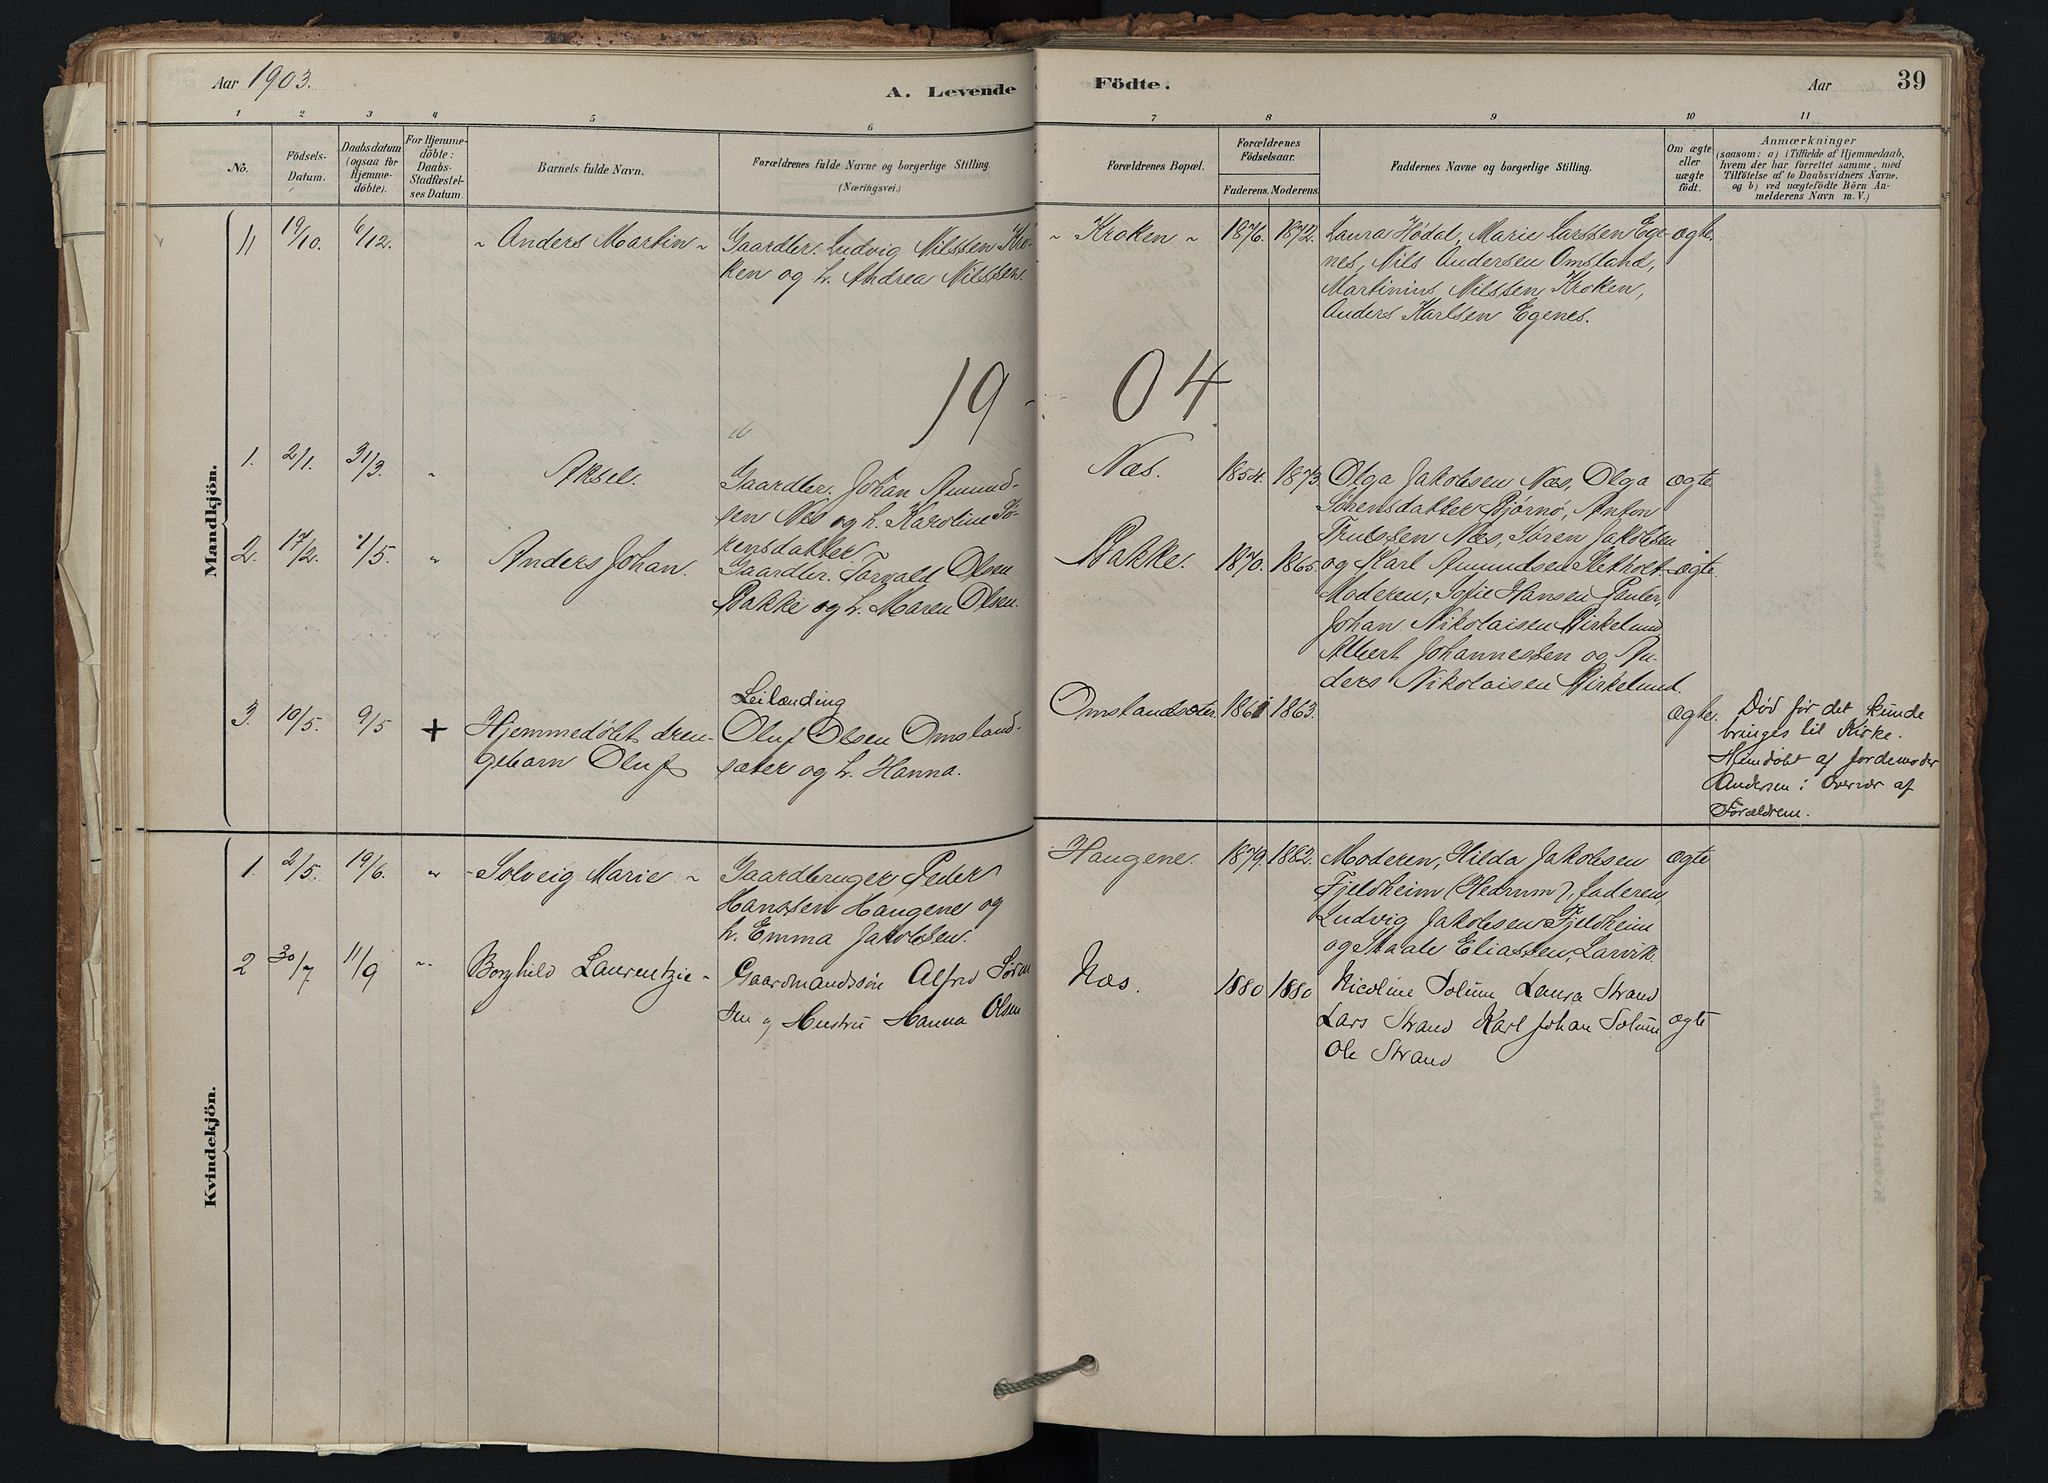 Aar 1903.
A. Levende Födte.
Aar 39
1 2 3 4 5 6 7 8 9 10 11
No.
Födsels-
Datum.
Daabsdatum
(ogsaa for
Hjemme-
döbte).
For Hjemme-
döbte:
Daabs-
Stadfæstel-
ses Datum.
Barnets fulde Navn.
Forældrenes fulde Navne og borgerlige Stilling.
(Næringsvei.)
Forældrenes Bopæl.
Forældrenes
Födselsaar.
Faderens. Moderens.
Faddernes Navne og borgerlige Stilling.
Om ægte
eller
uægte
födt.
Anmærkninger
(saasom: a) i Tilfælde af Hjemmedaab,
hvem der har forrettet samme, med
Tilföielse af to Daabsvidners Navne.
og b) ved uægtefödte Börn An-
melderens Navn m. V.)
Mandkjön.
11 19/10. 6/12.
" Anders Martin "
Gaardbr. Ludvig Nilssen Kro-
ken og h. Andrea Nilssen.
" Kroken "
1876. 1872.
Laura Hødal, Marie Larssen Ege-
nes, Nils Andersen Omsland,
Martinius Nilssen Kroken,
Anders Karlsen Egenes.
ægte.
19 04
1. 2/1. 31/3. "
Aksel.
Gaardbr. Johan Amund-
sen Nes og h. Karoline Sø-
rensdatter
Næs.
1854. 1873.
Olga Jakobsen Næs, Olga
Sørensdatter Bjørnø, Anton
Trulssen Næs, Søren Jakobsen
og Karl Amundsen
ægte
2. 17/2. 1/5. "
Anders Johan.
Gaardbr. Torvald Olsen
Bakke og h. Maren Olsen.
Bakke.
1870. 1865.
ægte.
Moderen, Sofie Hansen Pauler,
Johan Nikolaisen Birkelund
Albert Johannessen og An-
ders Nikolaisen Birkelund.
3. 10/5. 9/5 +
Hjemmedøbt dren-
gebarn Oluf
Leilænding
Oluf Olsen Omsland-
sæter og h. Hanna.
Omslandsæter.
1861 1863.
ægte.
Død før det kunde
bringes til Kirke.
Hjemdøbt af Jordemoder
Andersen i Overvær af
Forældrene.
Kvindekjön.
1. 2/5. 19/6. "
" Solveig Marie "
Gaardbruger Peder
Hanssen Haugene og
h. Emma Jakobsen.
Haugene.
1879. 1882.
Moderen, Hilda Jakobsen
Fjeldheim (Hedrum), Faderen
Ludvig Jakobsen Fjeldheim
og Staale Eliassen, Larvik.
ægte
2 30/7 11/9 "
Borghild Laurentzie "
Gaardmandssøn Alfred Søren
sen og Hustru Hanna Olsen
Næs.
1880 1880
Nicoline Solum Laura Strand
Lars Strand Karl Johan Solum
Ole Strand
ægte